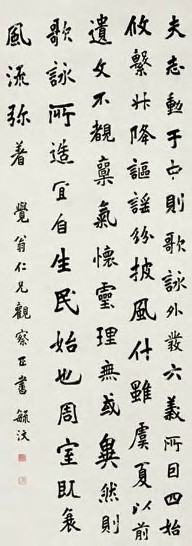 夫志動于中則歌詠外發六義所因四始
攸繫升降謳謠紛披風什雖虞夏以前
遺文不覩稟氣懷靈理無或異然則
歌詠所造宜自生民始也周室既衰
風流弥著 覺翁仁兄觀察正書 毓汶